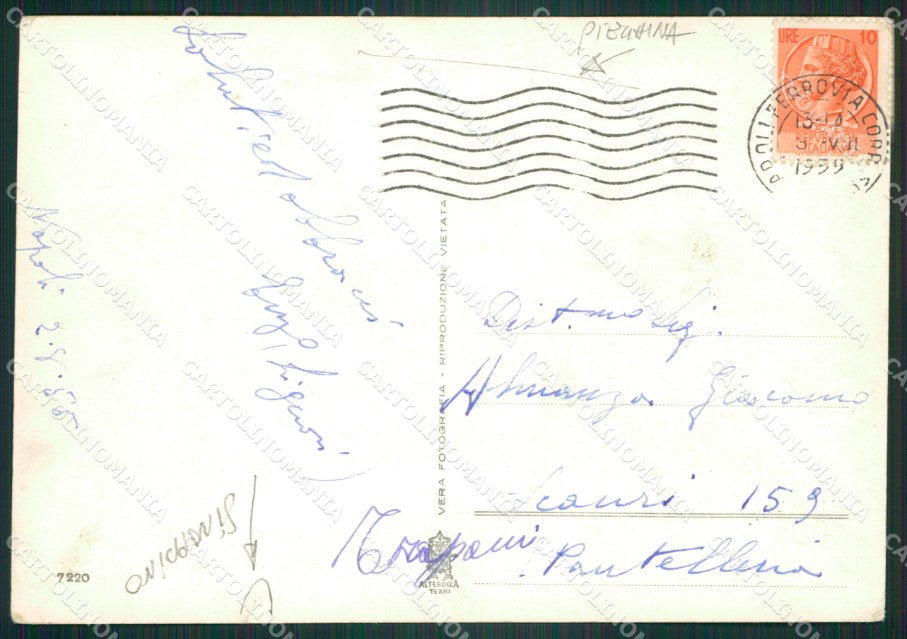 PIEGHINA
LIRE 10
NAPOLI FERROVIA CORR
13-14
3 VIII
1955
Saluti ed abbracci
Luigi
Napoli 2.8.55
VERA FOTOGRAFIA - RIPRODUZIONE VIETATA
Dist.mo Sig.
Almanza Giacomo
Scauri 159
Trapani
Pantelleria
ALTEROCCA
TERNI
7220
SINAPPINO
CARTOLINOMANIA